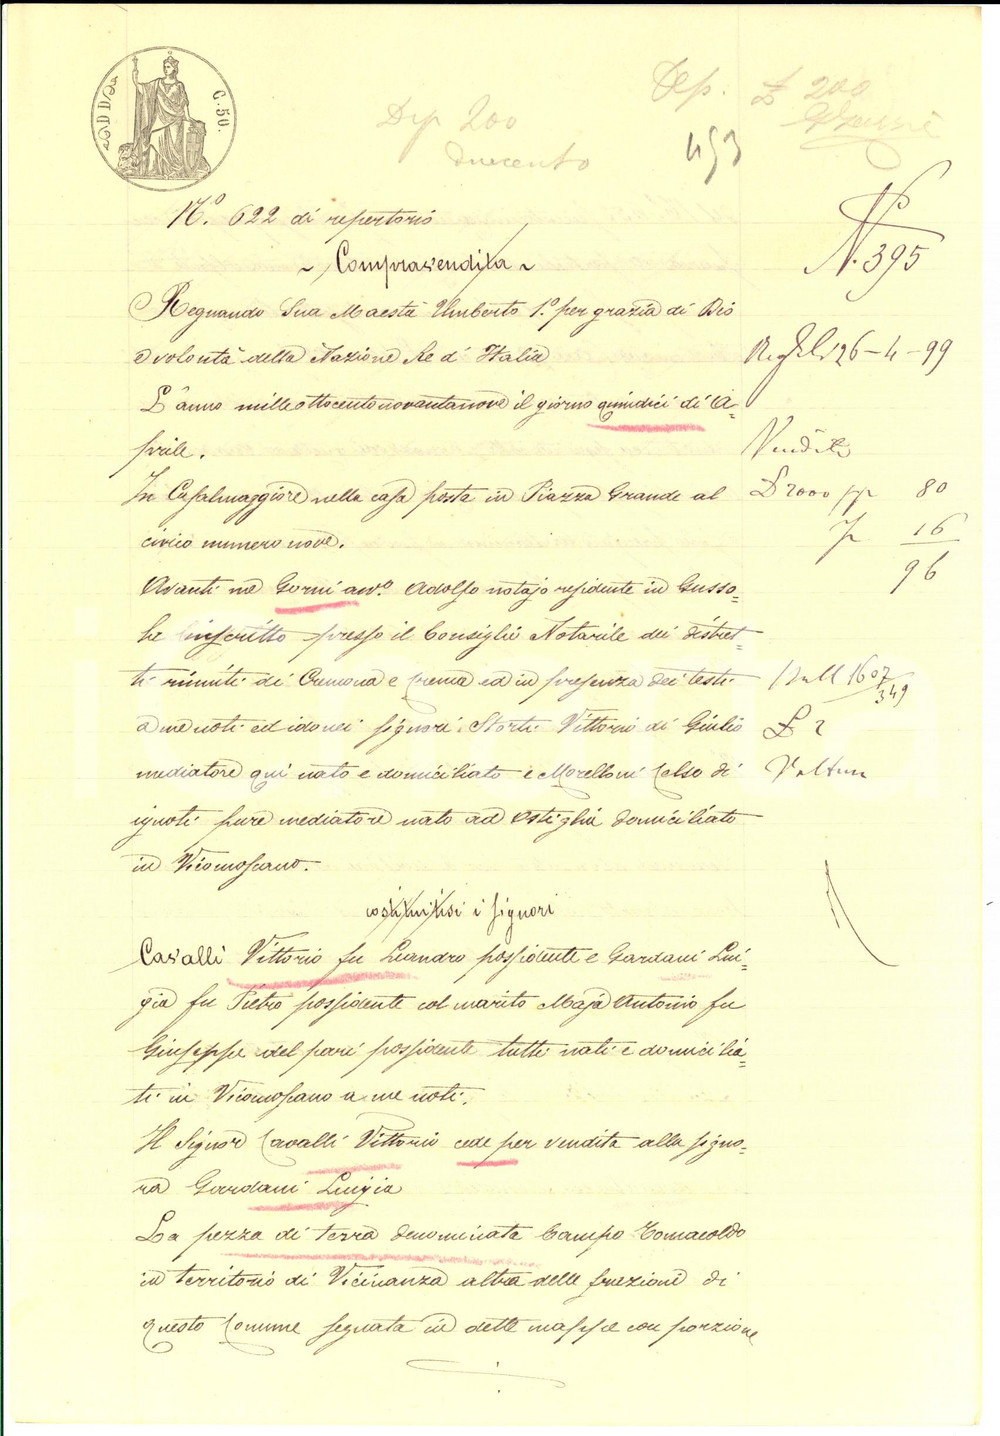 C. 50.
Dep. £ 200
Dep 200
duecento
493
N.° 622 di repertorio
N. 395
~ Compravendita ~
Regnando Sua Maestà Umberto 1.° per grazia di Dio
e volontà della Nazione Re d' Italia
26-4-99
L'anno mille ottocentonovantanove il giorno quindici di A=
prile.
Vendita
In Casalmaggiore nella casa posta in Piazza Grande al
£ 2000 80
civico numero nove.
16
96
Avanti me Gorni avv.° Adolfo notajo residente in Gusso=
la inscritto presso il Consiglio Notarile dei distret=
ti riuniti di Cremona e Crema ed in presenza dei testi
1607
349
a me noti ed idonei signori Storti Vittorio di Giulio
£ 2
mediatore qui nato e domiciliato e Morelloni Celso di
Voltura
ignoti pure mediatore nato ad Ostiglia domiciliato
in Vicomoscano.
costituitisi i signori
Cavalli Vittorio fu Leandro possidente e Gardani Lui=
gia fu Pietro possidente col marito Maja Antonio fu
Giuseppe del pari possidente tutti nati e domicilia=
ti in Vicomoscano a me noti.
Il Signor Cavalli Vittorio cede per vendita alla signo=
ra Gardani Luigia
La pezza di terra denominata Campo Tomacoldo
in territorio di Vicinanza altra delle frazioni di
questo Comune segnata in dette mappe con porzione